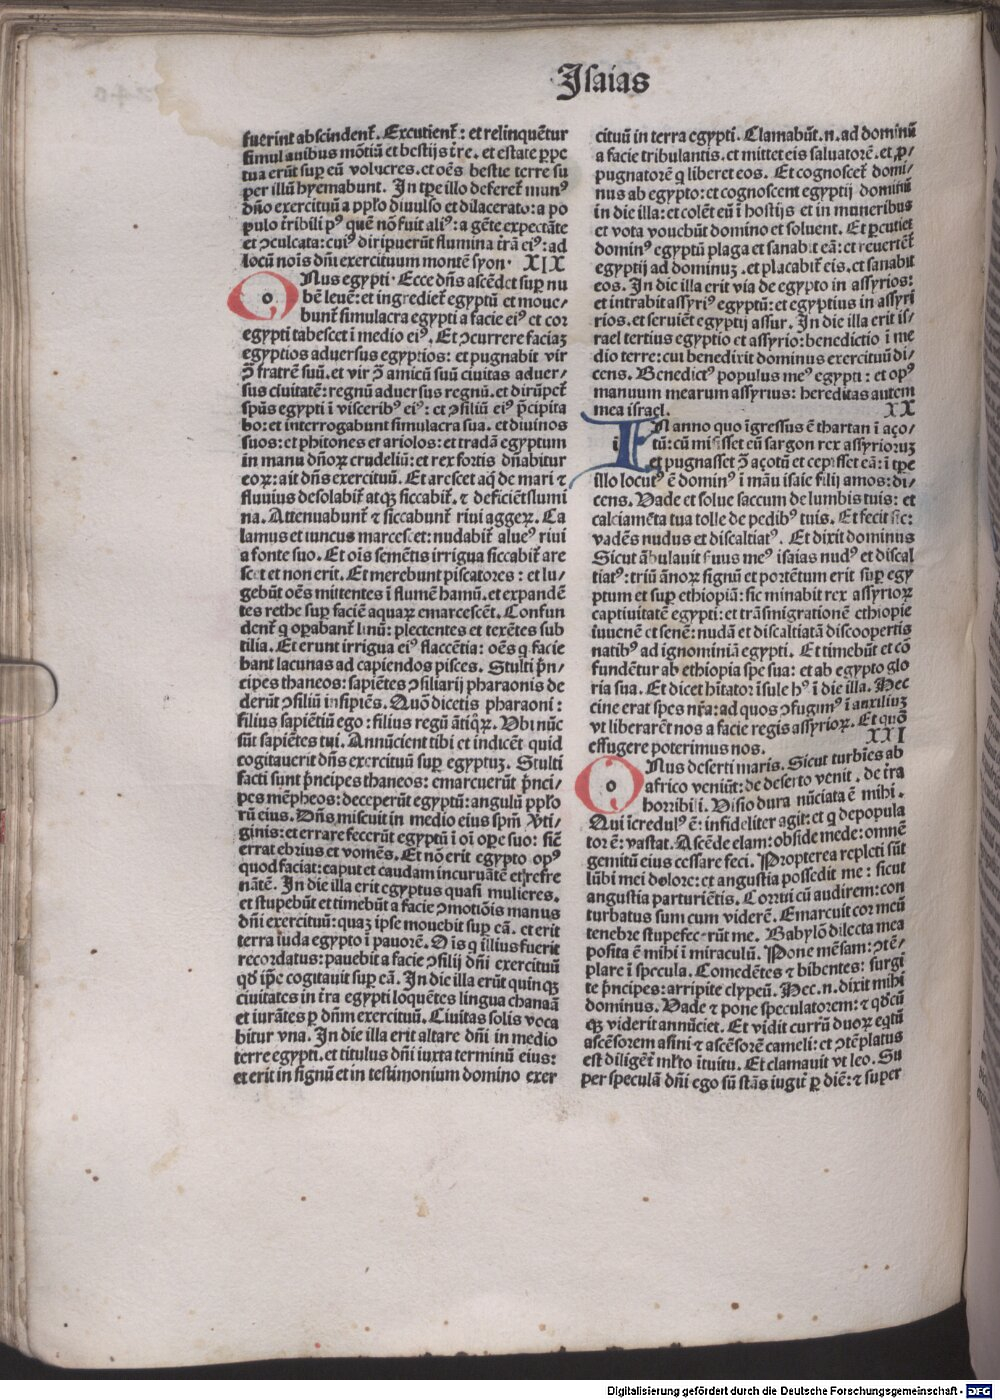 Isaias
fuerint abscindent̄. Excutient̄: et relinquētur
simul auibus mōtiū et bestijs tr̄e. et estate ꝑpe
tua erūt sup eū volucres. et oēs bestie terre su
per illū hyemabunt. In tp̄e illo deferet̄ munꝰ
dn̄o exercituū a pp̄lo diuulso et dilacerato: a po
pulo tr̄ibili pꝰ quē nō fuit aliꝰ: a gēte expectāte
et ꝯculcata: cuiꝰ diripuerūt flumina tr̄ā eiꝰ: ad
locū noīs dn̄i exercituum montē syon. XIX
oNus egypti. Ecce dn̄s ascēdet sup̄ nu
bē leuē: et ingrediet̄ egyptū et moue/
bunt̄ simulacra egypti a facie eiꝰ et cor
egypti tabescet ī medio eiꝰ. Et ꝯcurrere faciaꝫ
egyptios aduersus egyptios: et pugnabit vir
ꝯ̄ fratrē suū. et vir ꝯ̄ amicū suū ciuitas aduer/
sus ciuitatē: regnū aduersus regnū. et dirūpet̄
spūs egypti ī visceribꝰ eiꝰ: et ꝯsiliū eiꝰ p̄cipita
bo: et interrogabunt simulacra sua. et diuinos
suos: et phitones et ariolos: et tradā egyptum
in manu dn̄oꝝ crudeliū: et rex fortis dn̄abitur
eoꝝ: ait dn̄s exercituū. Et arescet aq̄ de mari ⁊
fluuius desolabit̄ atqꝫ siccabit̄. ⁊ deficiēt flumi
na. Attenuabunt̄ ⁊ siccabunt̄ riui aggeꝝ. Ca
lamus et iuncus marcescet: nudabit̄ alueꝰ riui
a fonte suo. Et oīs semētis irrigua siccabit̄ are
scet et non erit. Et merebunt piscatores: et lu/
gebūt oēs mittentes ī flumē hamū. et expandē
tes rethe sup̄ faciē aquaꝝ emarcescēt. Confun
dent̄ q̄ oꝑabant̄ linū: plectentes et texētes sub
tilia. Et erunt irrigua eiꝰ flaccētia: oēs q̄ facie
bant lacunas ad capiendos pisces. Stulti p̄n/
cipes thaneos: sapiētes ꝯsiliarij pharaonis de
derūt ꝯsiliū insipiēs. Quō dicetis pharaoni:
filius sapiētiū ego: filius regū ātiq̄ꝝ. Vbi nūc
sūt sapiētes tui. Annūcient tibi et indicēt quid
cogitauerit dn̄s exercituū sup̄ egyptuꝫ. Stulti
facti sunt p̄ncipes thaneos: emarcuerūt p̄nci/
pes mēpheos: deceperūt egyptū: angulū pp̄lo
rū eius. Dn̄s miscuit in medio eius spm̄ ꝟti/
ginis: et errare fecerūt egyptū ī oī oꝑe suo: sic̄
errat ebrius et vomēs. Et nō erit egypto opꝰ
quod faciat: caput et caudam incuruātē et refre
nātē. In die illa erit egyptus quasi mulieres.
et stupebūt et timebūt a facie ꝯmotiōis manus
dn̄i exercituū: quaꝫ ipse mouebit sup̄ eā. et erit
terra iuda egypto ī pauorē. Ois q̄ illius fuerit
recordatus: pauebit a facie ꝯsilij dn̄i exercituū
qd̄ ip̄e cogitauit sup̄ eā. In die illa erūt quinqꝫ
ciuitates in tr̄a egypti loquētes lingua chanaā
et iurātes ꝑ dn̄m exercituū. Ciuitas solis voca
bitur vna. In die illa erit altare dn̄i in medio
terre egypti. et titulus dn̄i iuxta terminū eius:
et erit in signū et in testimonium domino exer
cituū in terra egypti. Clamabūt. n. ad dominū
a facie tribulantis. et mittet eis saluatorē. et ꝓ/
pugnatorē q̄ liberet eos. Et cognoscet̄ domi/
nus ab egypto: et cognoscent egyptij dominū
in die illa: et colēt eū ī hostijs et in muneribus
et vota vouebūt domino et soluent. Et ꝑcutiet
dominꝰ egyptū plaga et sanabit eā: et reuertēt̄
egyptij ad dominuꝫ. et placabit̄ eis. et sanabit
eos. In die illa erit via de egypto in assyrios:
et intrabit assyriꝰ egyptū: et egyptius in assyri
rios. et seruiēt egyptij assur. In die illa erit is/
rael tertius egyptio et assyrio: benedictio ī me
dio terre: cui benedixit dominus exercituū di/
cens. Benedictꝰ populus meꝰ egypti: et opꝰ
manuum mearum assyrius: hereditas autem
mea israel. XX
iN anno quo īgressus ē thartan ī aço/
tū: cū misisset eū sargon rex assyrioruꝫ
et pugnasset ꝯ̄ açotū et cepisset eā: ī tp̄e
illo locutꝰ ē dominꝰ ī māu isaie filij amos: di/
cens. Vade et solue saccum de lumbis tuis: et
calciamēta tua tolle de pedibꝰ tuis. Et fecit sic:
vadēs nudus et discaltiatꝰ. Et dixit dominus
Sicut ābulauit suus meꝰ isaias nudꝰ et discal
tiatꝰ: triū ānoꝝ signū et portētum erit sup̄ egy
ptum et sup̄ ethiopiā: sic minabit rex assyrioꝝ
captiuitatē egypti: et trāsmigrationē ethiopie
iuuenē et senē: nudā et discaltiatā discoopertis
natibꝰ ad ignominiā egypti. Et timebūt et cō
fundētur ab ethiopia spe sua: et ab egypto glo
ria sua. Et dicet hītator īsule hꝰ ī die illa. Hec
cine erat spes nr̄a: ad quos ꝯfugimꝰ ī auxiliuꝫ
vt liberarēt nos a facie regis assyrioꝝ. Et quō
effugere poterimus nos. XXI
oNus deserti maris. Sicut turbīes ab
africo veniūt: de deserto venit. de tr̄a
horribili. Visio dura nūciata ē mihi.
Qui īcredulꝰ ē: infideliter agit: et q̄ depopula
tor ē: vastat. Ascēde elam: obside mede: omnē
gemitū eius cessare feci. Propterea repleti sūt
lūbi mei dolore: et angustia possedit me: sicut
angustia parturiētis. Corrui cū audirem: con
turbatus sum cum viderē. Emarcuit cor meū
tenebre stupefecerūt me. Babylō dilecta mea
posita ē mihi ī miraculū. Pone mēsam: ꝯtē/
plare ī specula. Comedētes ⁊ bibentes: surgi
te p̄ncipes: arripite clypeū. Hec. n. dixit mihi
dominus. Vade ⁊ pone speculatorem: ⁊ qd̄cū
qꝫ viderit annūciet. Et vidit currū duoꝝ eqtū
ascēsorem asini ⁊ ascēsorē cameli: et ꝯtēplatus
est diligēt̄ ml̄to ītuitu. Et clamauit vt leo. Su
per speculā dn̄i ego sū stās iugit̄ ꝑ diē: ⁊ super
Digitalisierung gefördert durch die Deutsche Forschungsgemeinschaft - DFG